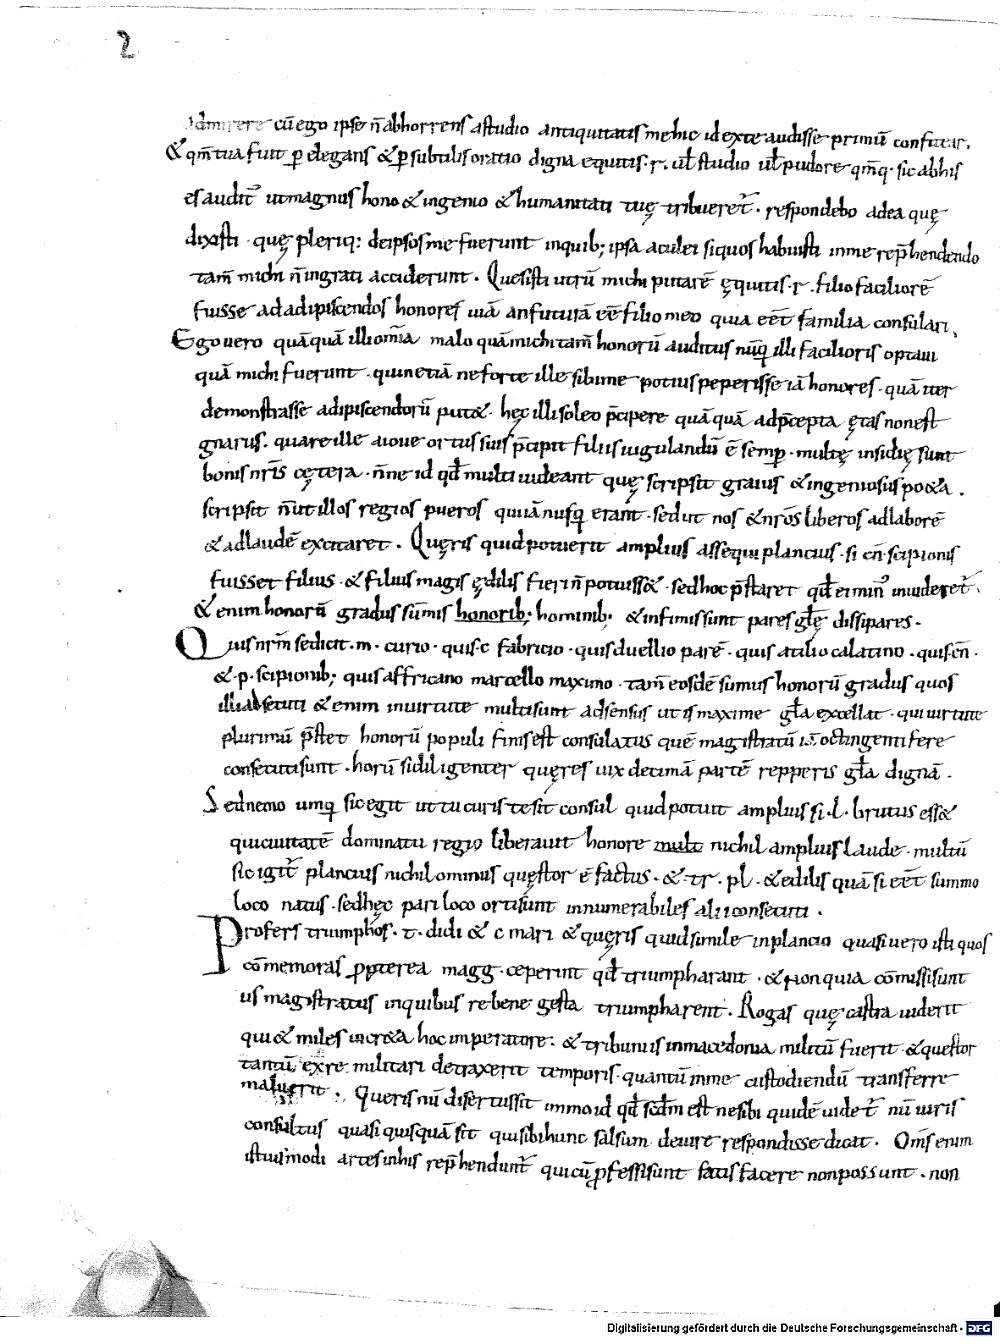 2
admirere cū ego ipse n̄ abhorrens a studio antiquitatis me hic id ex te audisse primū confitear.
& qm̄ tua fuit p̱ elegans & p̱ subtilis oratio digna equitis .r. ul̄ studio ul̄ pudore qm̄q· sic ab his
es audit᾽ ut magnus hono & ingenio & humanitati tuę tribueret᷑. respondebo ad ea quę
dixisti · quę pleriq: de ipso me fuerunt in quib; ipsa aculei si quos habuisti in me rep̄hendendo
tam̄ michi n̄ ingrati acciderunt. Quesisti utrū michi putarē ęquitis .r. filio faciliorē
fuisse ad adipiscendos honores uiā an futurā eē filio meo quia eēt familia consulari,
Ego uero quāquā illi om̄ia malo quā michi tam̄ honorū auditus nūq illi facilioris optaui
quā michi fuerunt · quin etiā ne forte ille sibi me potius peperisse iā honores · quā iter
demonstrasse adipiscendorū put&. hęc illi soleo p̄cipere quāquā ad p̄cepta ętas non est
gnarus. quare ille a ioue ortus suis p̄cipit filiis uigulandū ē semp̱ · multę insidię sunt
bonis nr̄is cętera · n̄ne id qđ multi uideant quę scripsit graius & ingeniosus po&a.
scripsit n̄ ut illos regios pueros qui iā nusq̄ erant · sed ut nos & nr̄os liberos ad laborē
& ad laudē excitaret. Quęris quid potuerit amplius assequi plancius · si cn̄ · scipionis
fuisset filius · & filius magis ędilis fieri n̄ potuiss& · sed hoc p̄staret qđ ei min᾽ inuideret᷑.
& enim honorū gradus sūmis honorib; hominib; & infimis sunt pares gl̄ę dissipares.
Quis nr̄m se dicit · m · curio · quis · c fabricio · quis duellio parē · quis atilio calatino · quis cn̄ ·
& · p · scipionib; quis affricano marcello maximo · tam̄ eosdē sumus honorū gradus quos
illi adsecuti & enim in uirtute multi sunt adsensus ut is maxime gl̄a excellat · qui uirtute
plurimū p̄stet honorū populi finis est consulatus quē magistratū iā octingenti fere
consecuti sunt · horū si diligenter quęres uix decimā partē repperis gl̄a dignā.
Sed nemo umq̄ sic egit ut tu cur iste sit consul quid potuit amplius si · l · brutus ess&
qui ciuitatē dominatu regio liberauit honore mult nichil amplius laude · multū
sic igit᷑ plancius nichilominus quęstor ē factus · & · tr · pl · & edilis quā si eēt summo
loco natus · sed hęc pari loco orti sunt innumerabiles alii consecuti.
Profers triumphos · t · didi & c mari & quęris quid simile in plancio quasi uero isti quos
cōmemoras p̱pterea magg · ceperint qđ triumpharant · & non quia cōmissi sunt
iis magistratus in quibus re bene gesta triumpharent. Rogas quę castra uiderit
qui & miles in cr&a hoc imperatore: & tribunus in macedonia militū fuerit & questor
tantū ex re militari detraxerit temporis · quantū in me custodiendū transferre
maluerit. Queris nū disertus sit immo id qđ scd̄m est ne sibi quidē uidet᷑ nū uiris
consultus quasi quisquā sit qui sibi hunc falsum de iure respondisse dicat. Om̄s enim
istiusmodi artes in his rep̄hendunt᷑ qui cū p̱fessi sunt satis facere non possunt · non
Digitalisierung gefördert durch die Deutsche Forschungsgemeinschaft - DFG